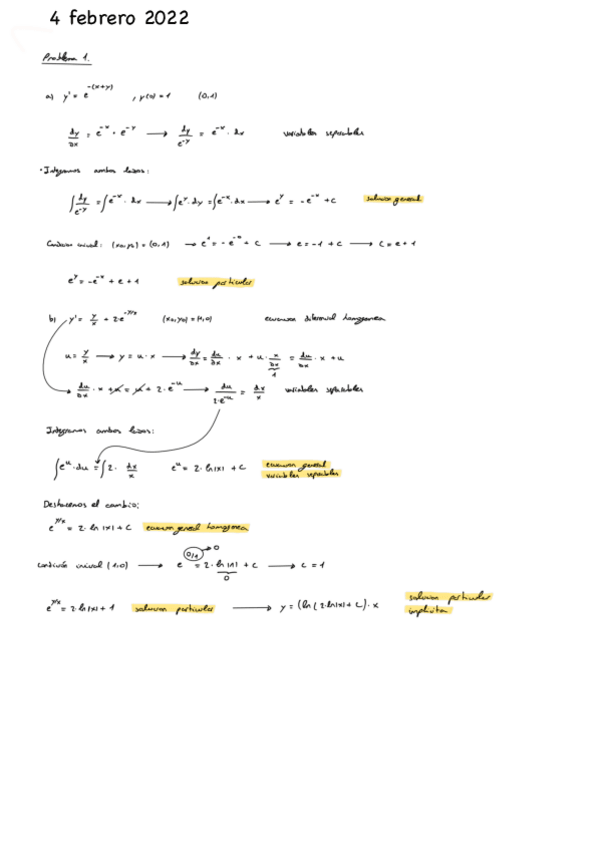 4 febrero 2022
Problema 1.
a) y' = e^-(x+y) , y(0)=1 (0,1)
dy/dx = e^-x · e^-y → dy/e^-y = e^-x · dx variables separables
· Integramos ambos lados:
∫ dy/e^-y = ∫ e^-x · dx → ∫ e^y · dy = ∫ e^-x · dx → e^y = -e^-x + C solucion general
Condicion inicial: (x0,y0) = (0,1) → e^1 = -e^-0 + C → e = -1 + C → C = e + 1
e^y = -e^-x + e + 1 solucion particular
b) y' = y/x + 2·e^-y/x (x0,y0) = (1,0) ecuacion diferencial homogenea
u = y/x → y = u·x → dy/dx = du/dx · x + u · x/x = du/dx · x + u
1
du/dx · x + u = u + 2·e^-u → du/2·e^-u = dx/x variables separables
Integramos ambos lados:
∫ e^u · du = ∫ 2 · dx/x e^u = 2·ln|x| + C ecuacion general
variables separables
Deshacemos el cambio:
e^y/x = 2·ln|x| + C ecuacion general homogenea
condición inicial (1,0) → e^0/1 = 2·ln|1| + C → C = 1
0
0
e^y/x = 2·ln|x| + 1 solucion particular → y = (ln(2·ln|x| + C)·x solucion particular
implicita